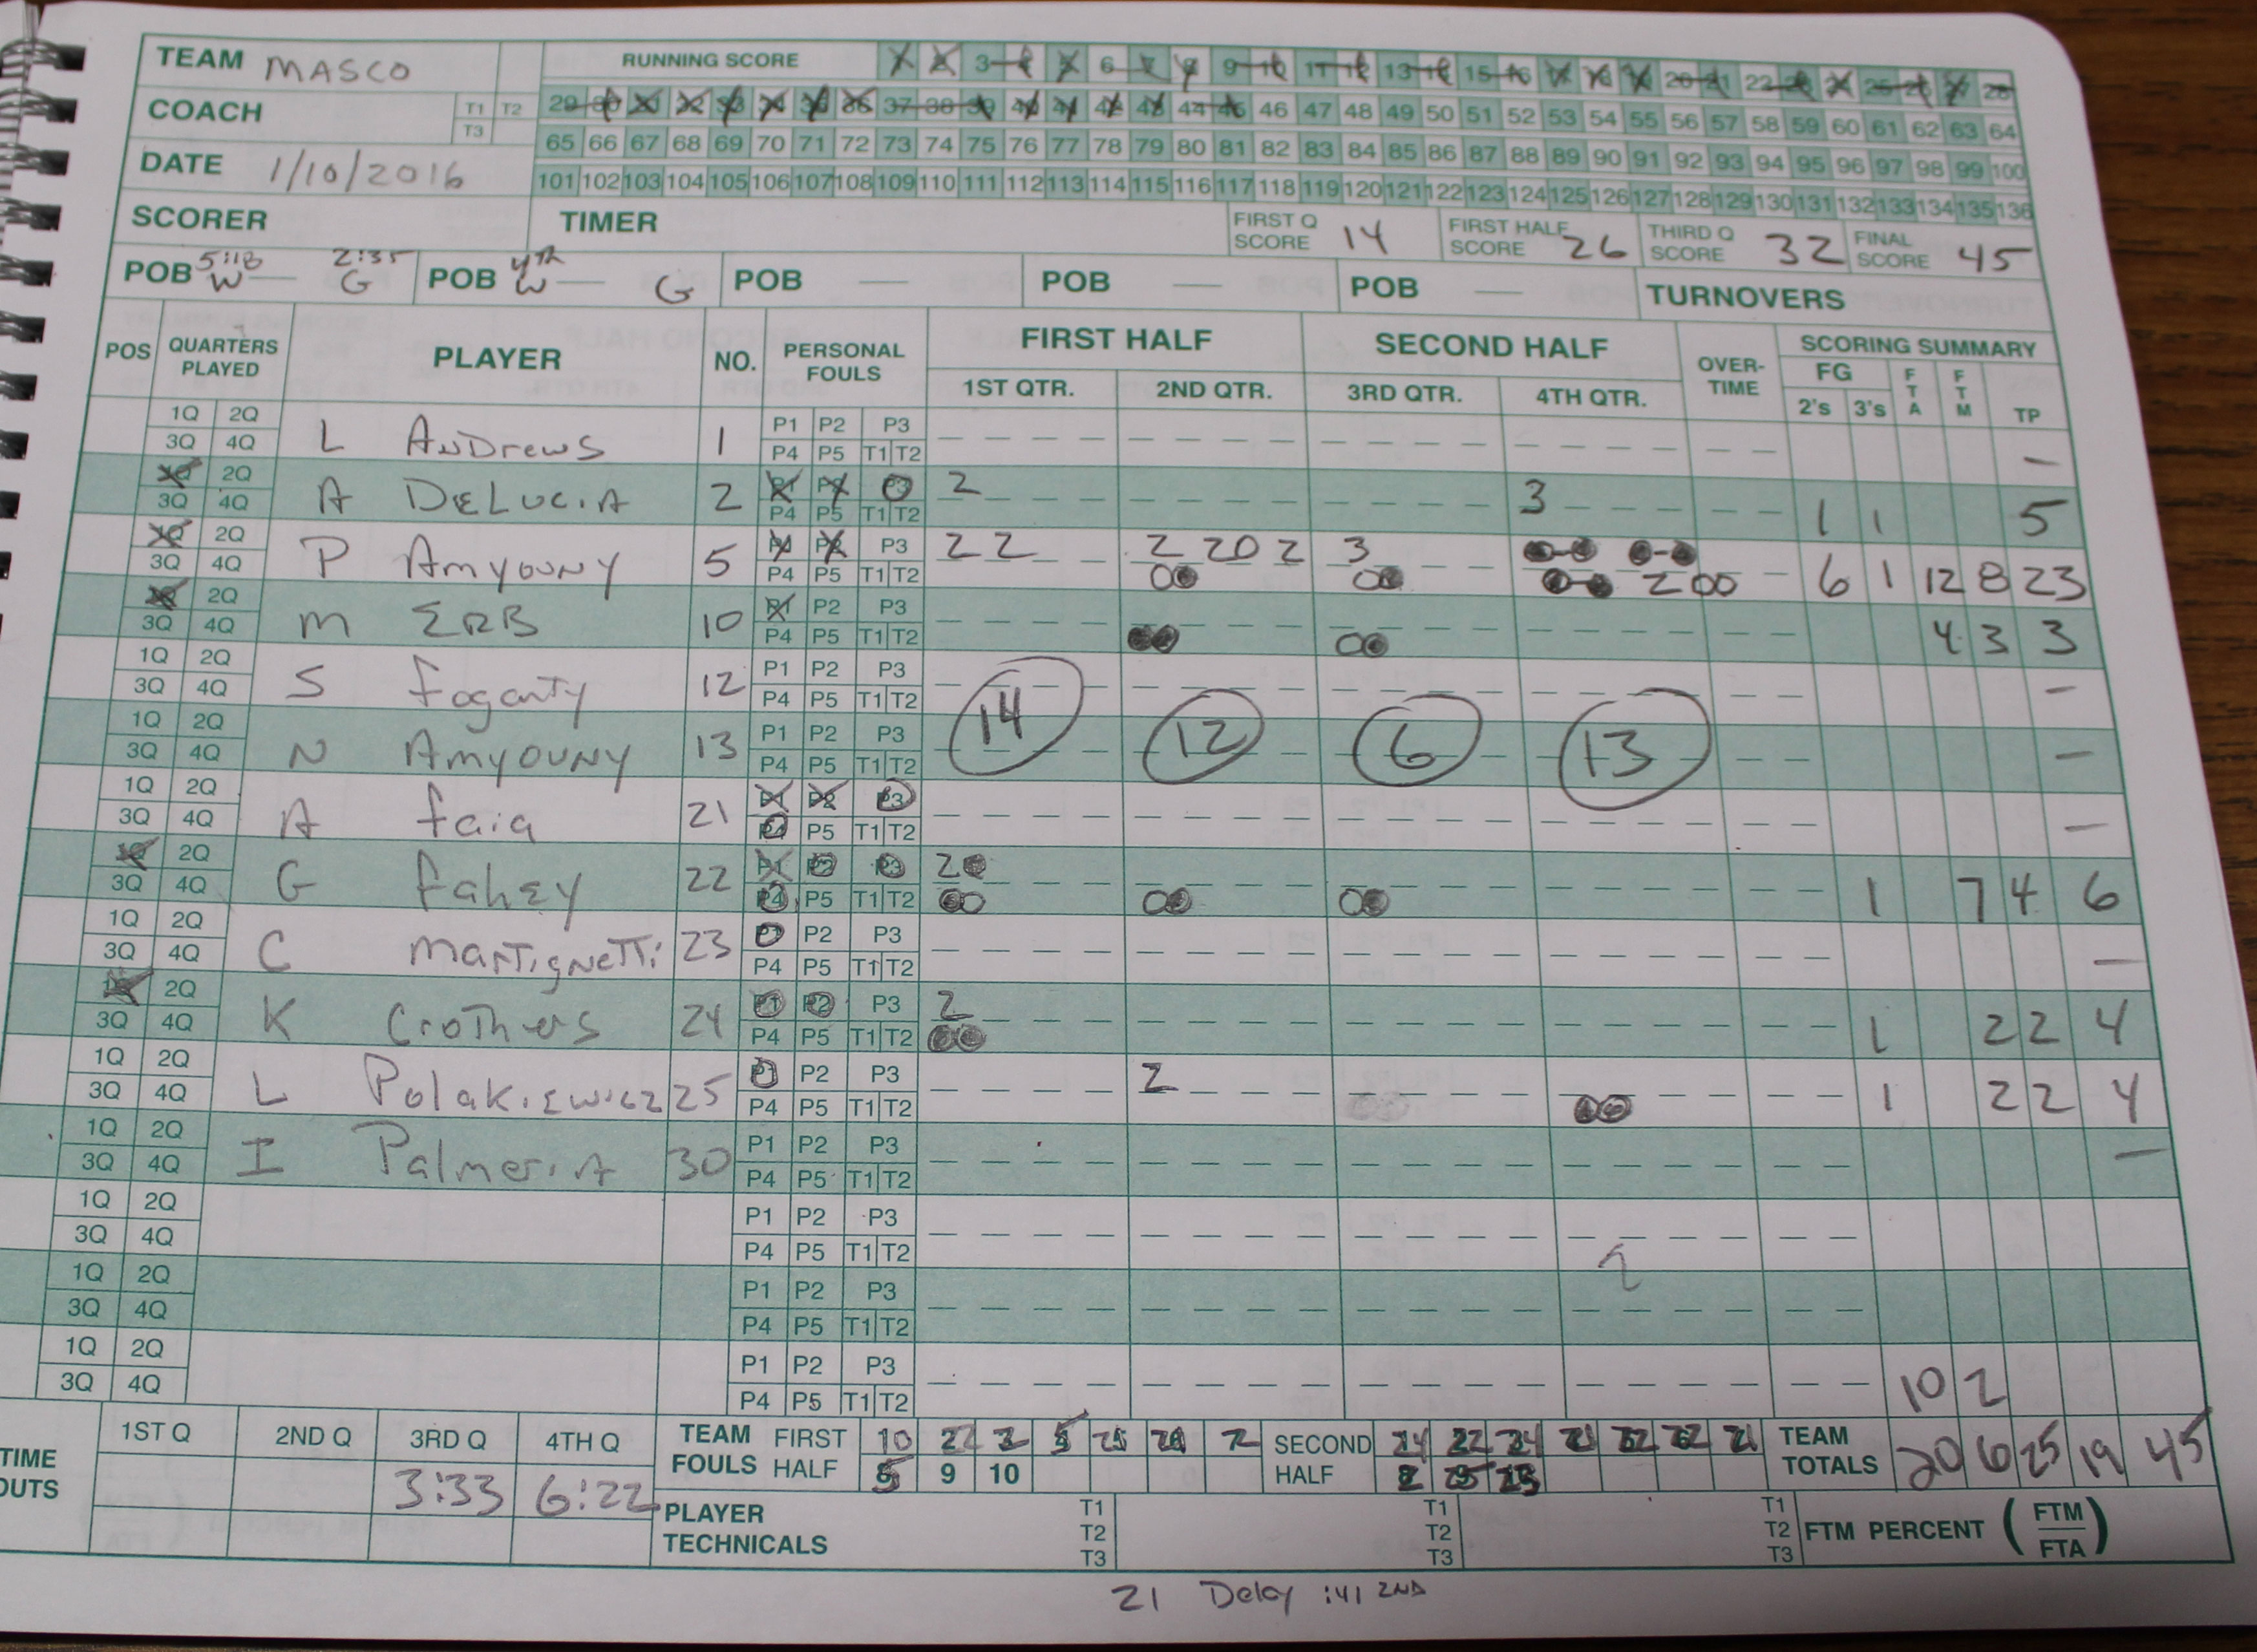 TEAM MASCO RUNNING SCORE 1 2 3 4 5 6 7 8 9 10 11 12 13 14 15 16 17 18 19 20 21 22 23 24 25 26 27 28
COACH T1 T2 T3 29 30 31 32 33 34 35 36 37 38 39 40 41 42 43 44 45 46 47 48 49 50 51 52 53 54 55 56 57 58 59 60 61 62 63 64
65 66 67 68 69 70 71 72 73 74 75 76 77 78 79 80 81 82 83 84 85 86 87 88 89 90 91 92 93 94 95 96 97 98 99 100
DATE 1/10/2016 101 102 103 104 105 106 107 108 109 110 111 112 113 114 115 116 117 118 119 120 121 122 123 124 125 126 127 128 129 130 131 132 133 134 135 136
SCORER TIMER FIRST Q SCORE 14 FIRST HALF SCORE 26 THIRD Q SCORE 32 FINAL SCORE 45
5:18 2:35 4th
POB W — G POB W — G POB — POB — POB — TURNOVERS
POS QUARTERS PLAYED PLAYER NO. PERSONAL FOULS FIRST HALF SECOND HALF OVER-TIME SCORING SUMMARY
1ST QTR. 2ND QTR. 3RD QTR. 4TH QTR. FG 2's 3's FTA FTM TP
1Q 2Q P1 P2 P3
3Q 4Q L ANDrews 1 P4 P5 T1 T2 —
1Q 2Q P1 P2 P3 2 3
3Q 4Q A DELUCIA 2 P4 P5 T1 T2 1 1 5
1Q 2Q P1 P2 P3 2 2 2 20 2 3
3Q 4Q P AmyOUNY 5 P4 P5 T1 T2 2 00 6 1 12 8 23
1Q 2Q P1 P2 P3
3Q 4Q M ERB 10 P4 P5 T1 T2 4 3 3
1Q 2Q P1 P2 P3
3Q 4Q S Fogarty 12 P4 P5 T1 T2 —
14 12 6 13
1Q 2Q P1 P2 P3
3Q 4Q N AmyOUNY 13 P4 P5 T1 T2 —
1Q 2Q P1 P2 P3
3Q 4Q A faia 21 P4 P5 T1 T2 —
1Q 2Q P1 P2 P3 2
3Q 4Q G fahEy 22 P4 P5 T1 T2 1 7 4 6
1Q 2Q P1 P2 P3
3Q 4Q C MarTigNeTTi 23 P4 P5 T1 T2 —
1Q 2Q P1 P2 P3 2
3Q 4Q K CroThers 24 P4 P5 T1 T2 1 2 2 4
1Q 2Q P1 P2 P3 2
3Q 4Q L PolakiEwicz 25 P4 P5 T1 T2 1 2 2 4
1Q 2Q P1 P2 P3
3Q 4Q I PalmeriA 30 P4 P5 T1 T2 —
1Q 2Q P1 P2 P3
3Q 4Q P4 P5 T1 T2
1Q 2Q P1 P2 P3
3Q 4Q P4 P5 T1 T2
1Q 2Q P1 P2 P3
3Q 4Q P4 P5 T1 T2 10 2
TIME OUTS 1ST Q 2ND Q 3RD Q 4TH Q TEAM FOULS FIRST HALF 10 22 2 5 25 24 2 SECOND HALF 24 22 24 21 22 22 21 TEAM TOTALS 20 6 25 19 45
3:33 6:22 5 9 10 2 25 23
PLAYER TECHNICALS T1 T2 T3 T1 T2 T3 T1 T2 T3 FTM PERCENT (FTM/FTA)
21 Delay :41 2ND